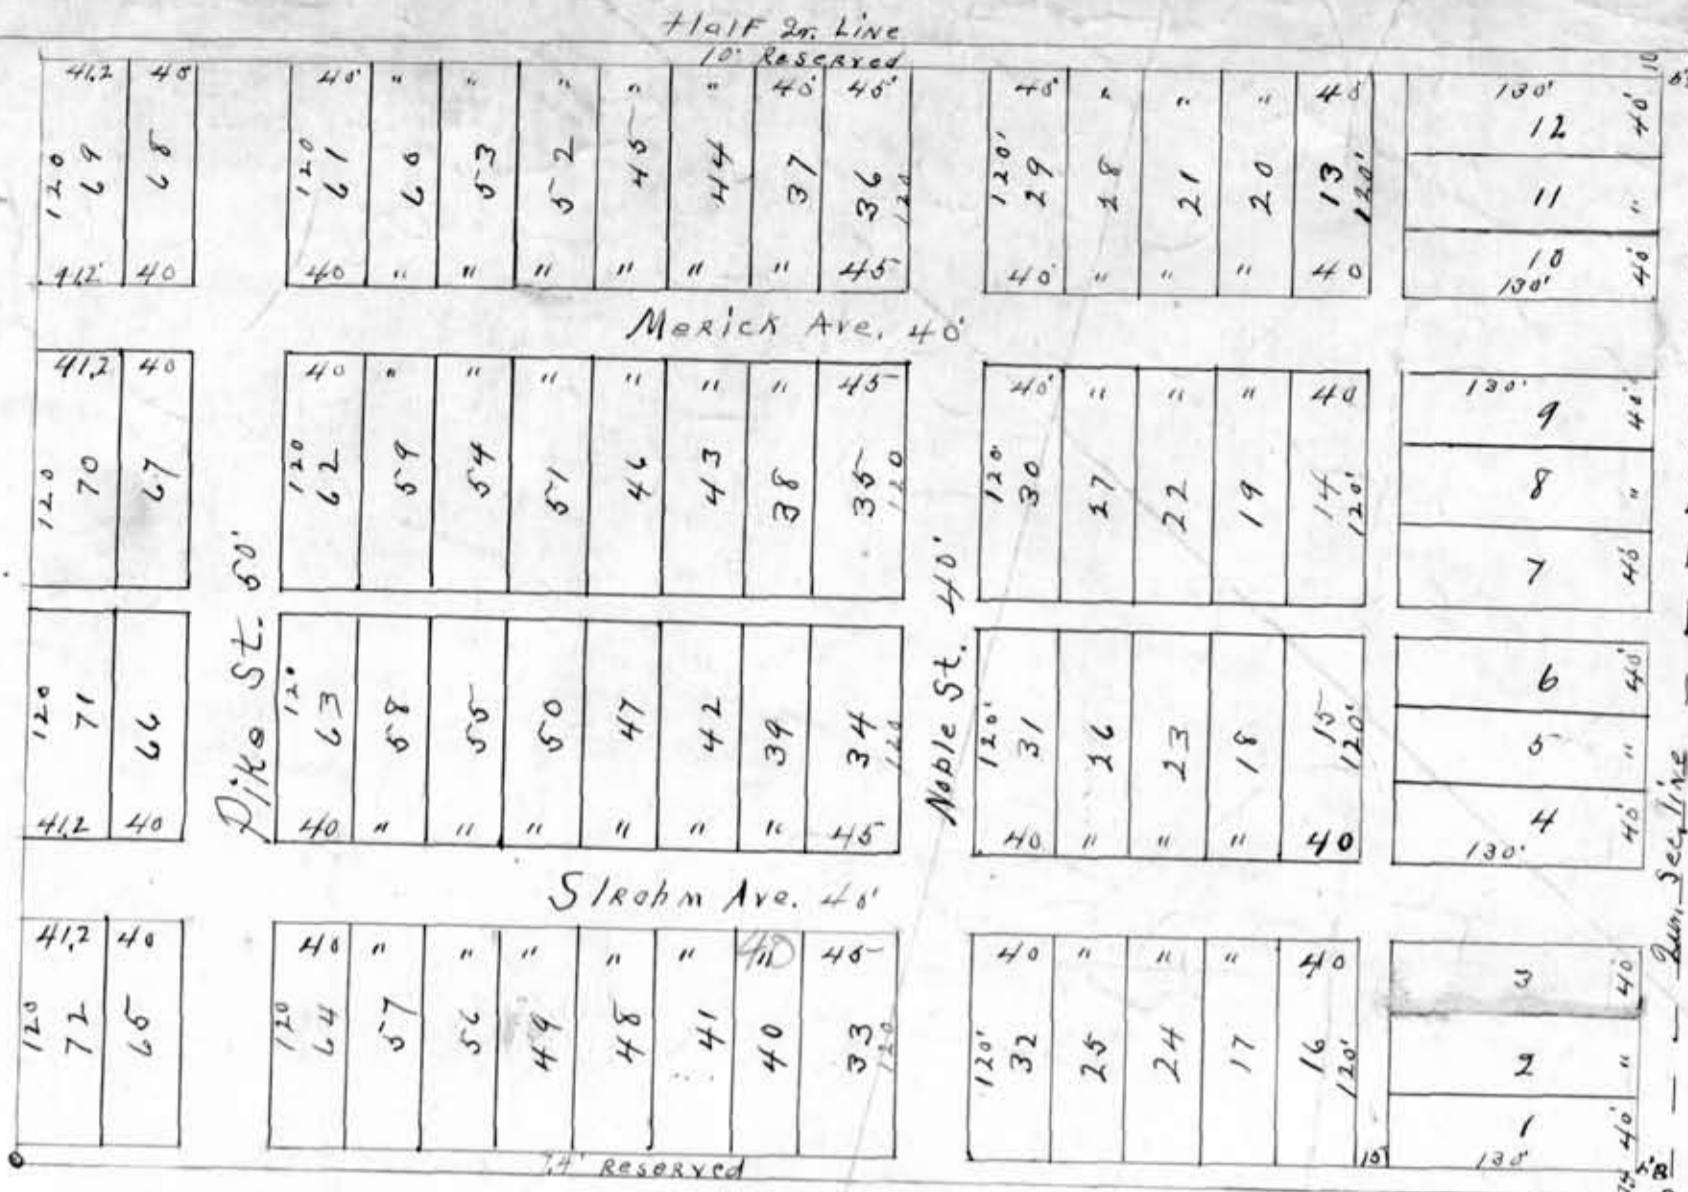 Half Qr. Line
10' Reserved
41.2 40 40' " " " " " 40' 45' 40' " " " 40 130' 10
120 69 68 120 61 60 53 52 45 44 37 36 120 120' 29 28 21 20 13 120' 12 40'
11 "
41.2 40 40 " " " " " " 45 40' " " " 40 10 130' 40'
Merick Ave. 40'
41.2 40 40 " " " " " " 45 40' " " " 40 130' 9 40'
120 70 67 120 62 59 54 51 46 43 38 35 120 120' 30 27 22 19 14 120' 8 "
7 40'
Pike St. 50'
Noble St. 40'
120 71 66 120 63 58 55 50 47 42 39 34 120 120' 31 26 23 18 15 120' 6 40'
5 "
41.2 40 40 " " " " " " 45 40 " " " 40 4 130' 40'
Strohm Ave. 40'
41.2 40 40 " " " " " 40 " 45 40 " " " 40 3 40
120 72 65 120 64 57 56 49 48 41 40 33 120 120' 32 25 24 17 16 120' 2 "
1 40'
7.4' Reserved 15' 130'
Sec. Line